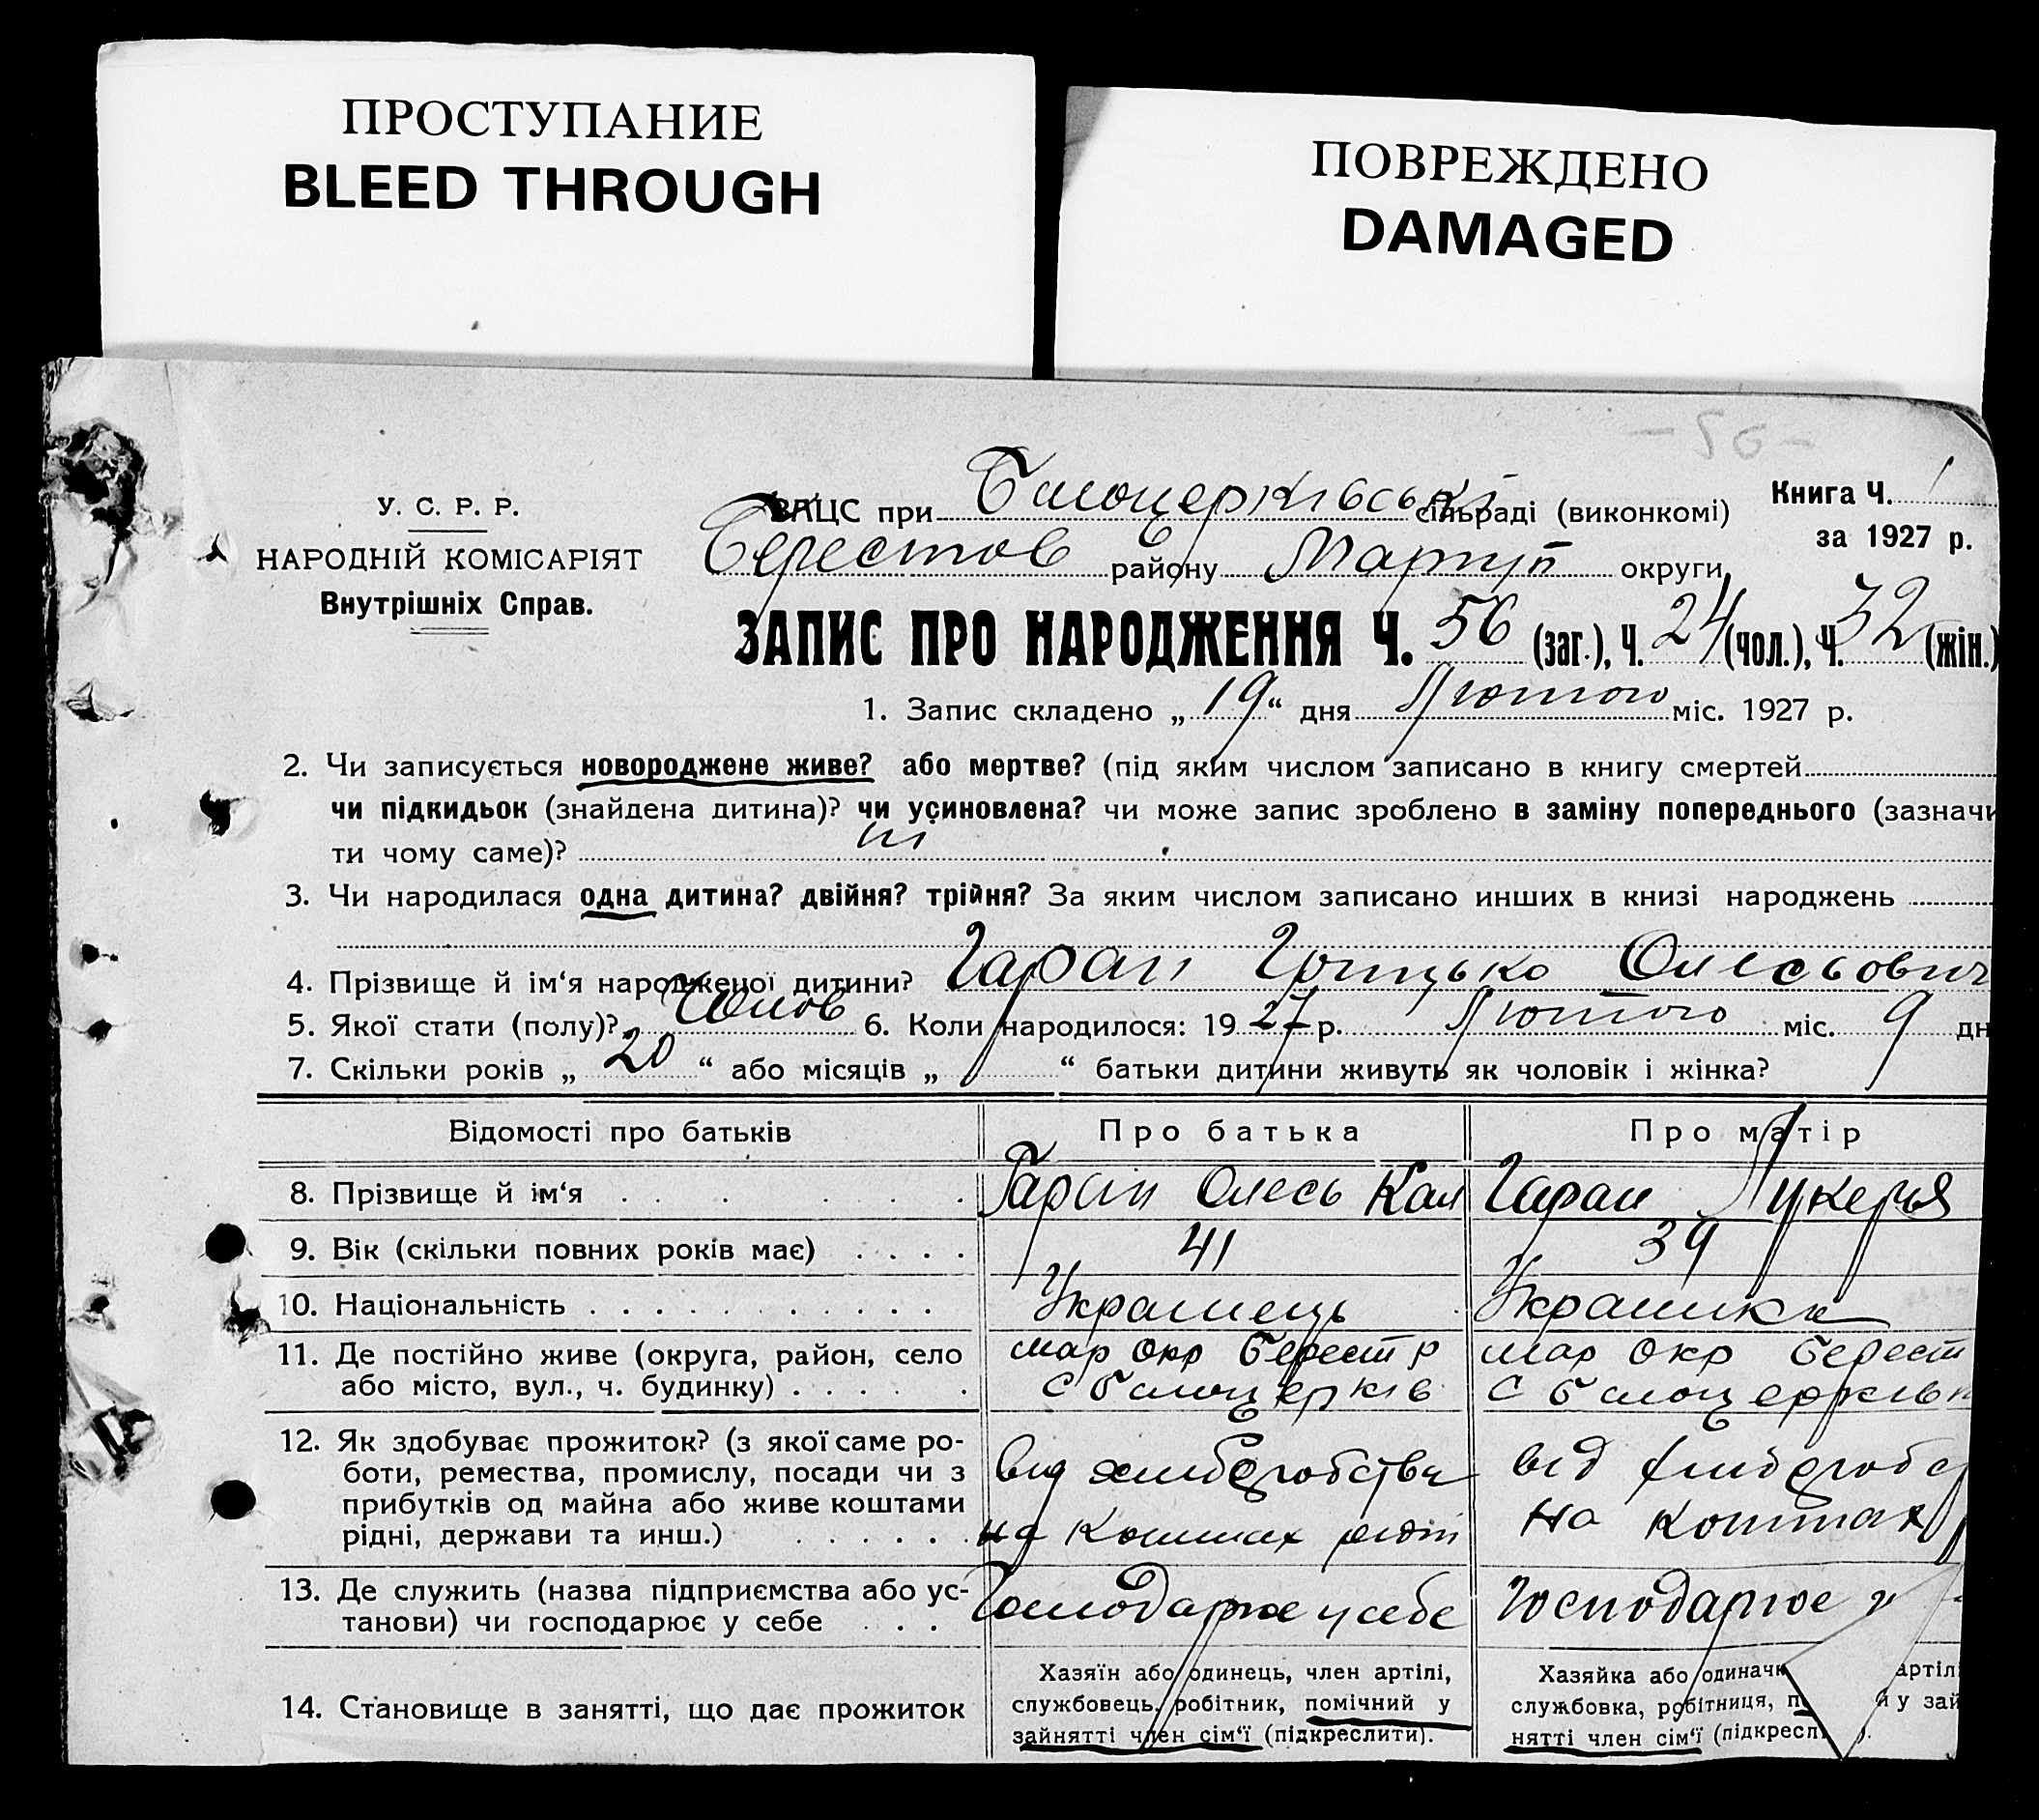 ПРОСТУПАНИЕ
BLEED THROUGH
ПОВРЕЖДЕНО
DAMAGED
- 56 -
У. С. Р. Р.
НАРОДНІЙ КОМІСАРІЯТ
Внутрішніх Справ.
ЗАЦС при Білоцерківській сільраді (виконкомі)
Берестов району Маріуп округи
Книга Ч. 1
за 1927 р.
ЗАПИС ПРО НАРОДЖЕННЯ Ч. 56 (заг.), Ч. 24 (чол.), Ч. 32 (жін.)
1. Запис складено „ 19 “ дня Лютого міс. 1927 р.
2. Чи записується новороджене живе? або мертве? (під яким числом записано в книгу смертей
чи підкидьок (знайдена дитина)? чи усиновлена? чи може запис зроблено в заміну попереднього (зазначи
ти чому саме)? ні
3. Чи народилася одна дитина? двійня? трійня? За яким числом записано инших в книзі народжень
4. Прізвище й ім‘я народженої дитини? Гаран Грицько Олесьович
5. Якої стати (полу)? Чолов 6. Коли народилося: 1927 р. Лютого міс. 9 дн
7. Скільки років „ 20 “ або місяців „ “ батьки дитини живуть як чоловік і жінка?
Відомості про батьків Про батька Про матір
8. Прізвище й ім‘я Гаран Олесь Кал Гаран Лукерья
9. Вік (скільки повних років має) 41 39
10. Національність Українець Українка
11. Де постійно живе (округа, район, село Мар окр Берест р Мар окр Берест
або місто, вул., ч. будинку) С Білоцерків С Білоцерківк
12. Як здобуває прожиток? (з якої саме ро-
боти, ремества, промислу, посади чи з від хліборобства від хлібороб
прибутків од майна або живе коштами
рідні, держави та инш.) на коштах рідні на коштах
13. Де служить (назва підприємства або ус-
танови) чи господарює у себе Господарює у себе Господарює у
14. Становище в занятті, що дає прожиток
Хазяїн або одинець, член артілі,
службовець, робітник, помічний у
зайнятті член сім‘ї (підкреслити).
Хазяйка або одиначк артіл
службовка, робітниця, п й у зай
нятті член сім‘ї (підкресл ).